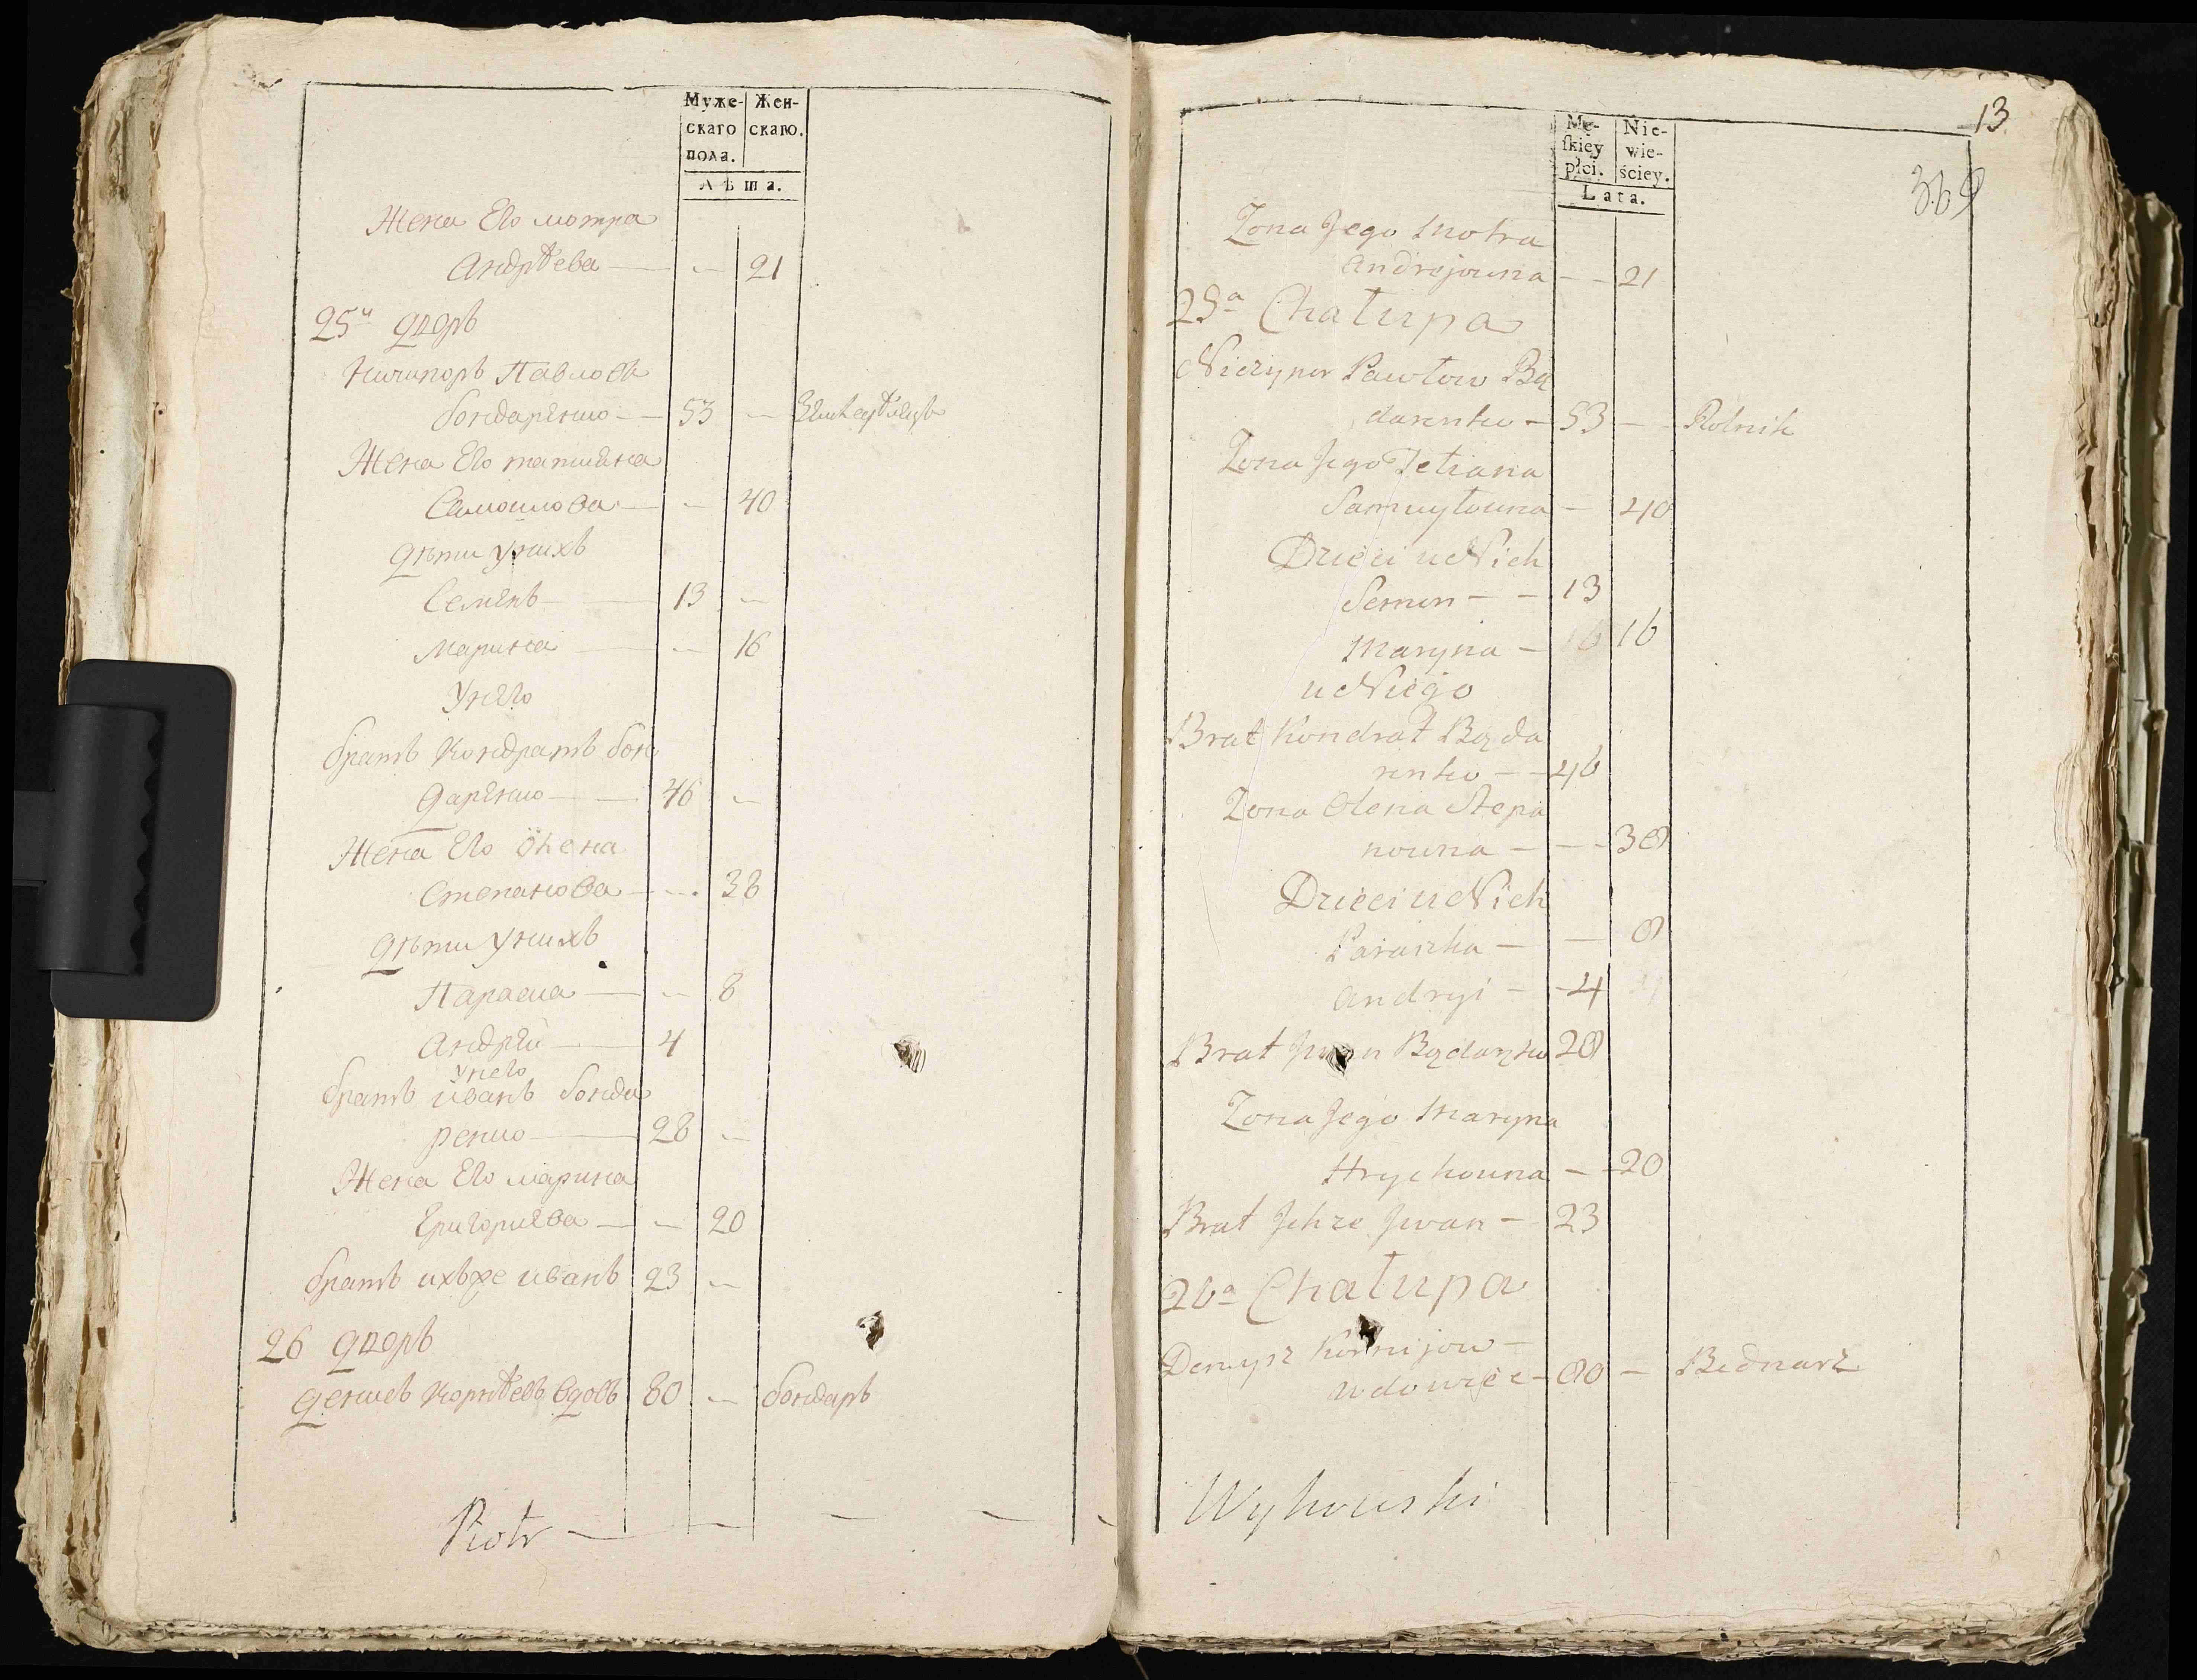 Муже-
скаго
пола.
Жен-
скаго.
Лѣта.
Жена Его мотра
Андрѣева — — 21
25й дворъ
Ничипоръ Павловъ
бондаренко — 53 — Землѣдѣлецъ
Жена Его татиана
Самоилова — — 40
дѣти унихъ
Семенъ — 13 —
Марина — — 16
Унего
братъ Кондратъ бон
даренко — 46 —
Жена Его олена
Степанова — — 38
дѣти унихъ
Параска — — 8
Андрей — 4
унего
братъ иванъ бонда
ренко — 28 —
Жена Его марина
Григориева — — 20
братъ ихъже иванъ 23 —
26 дворъ
денисъ Корнѣевъ вдовъ 80 — бондарь
Piotr — — — —
13
369
Mę-
ſkiey
płci.
Nie-
wie-
ściey.
Lata.
Zona Jego Motra
Andrejowna — — 21
25a Chałupa
Niczypor Pawłow Bą
darenko — 53 — Rolnik
Zona Jego Tetiana
Samuyłowna — 40
Dzieci u Nich
Semen — — 13
Maryna — 16 16
u Niego
Brat Kondrat Bąda
renko — — 46
Zona Olena Stepa
nowna — — — 38
Dzieci u Nich
Paraszka — — 8
Andryi — — 4
Brat Jwan Bądaręko 28
Zona Jego Maryna
Hryhowna — — 20
Brat Jchze Jwan — 23
26a Chałupa
Denysz Kornijow —
wdowiec — 80 — Bednarz
Wyhowski